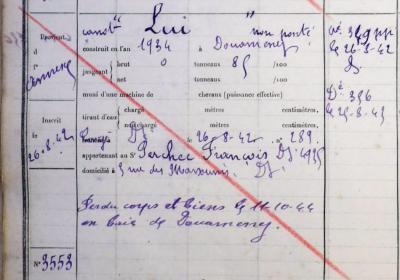 canot "Lui" non ponté
construit en l'an 1934 à Douarnenez
jaugeant brut 0 tonneaux 85 /100
net tonneaux /100
muni d'une machine de chevaux (puissance effective)
tirant d'eau chargé mètres centimètres,
non chargé mètres centimètres,
le 26-8-42 289
appartenant au Sr Perchec François Dz 4935
domicilié à 5 rue des Marsouins. Dz.
Perdu corps et biens le 11-10-44
en baie de Douarnenez
Dé. 349
le 26-8-42
Dz
Dé. 356
Inscrit
26.8.42
N° 3553